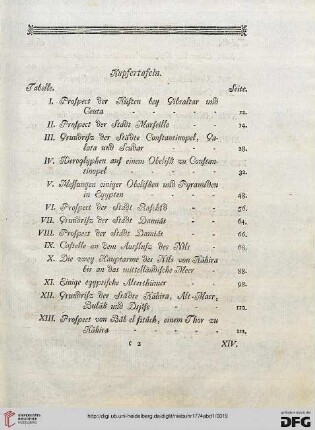 Kupfertafeln.
Tabelle. Seite.
I. Prospect der Küsten bey Gibraltar und
Ceuta - - - - 12.
II. Prospect der Stadt Marseille - - 14.
III. Grundriß der Städte Constantinopel, Ga-
lata und Scudar - - - 28.
IV. Hieroglyphen auf einem Obelisk zu Constan-
tinopel - - - - 32.
V. Messungen einiger Obelisken und Pyramiden
in Egypten - - - - 48.
VI. Prospect der Stadt Raschîd - - 56.
VII. Grundriß der Stadt Damiât - - 64.
VIII. Prospect der Stadt Damiât - - 66.
IX. Castelle an dem Ausfluß des Nils - 68.
X. Die zwey Hauptarme des Nils von Káhira
bis an das mittelländische Meer - 88.
XI. Einige egyptische Alterthümer - - 98.
XII. Grundriß der Städte Káhira, Alt-Masr,
Bulák und Dsjise - - - 110.
XIII. Prospect von Báb el fitúch, einem Thor zu
Káhira - - - - 111.
c 2 XIV.
http://digi.ub.uni-heidelberg.de/diglit/niebuhr1774abd1/0015
UNIVERSITÄTS-
BIBLIOTHEK
HEIDELBERG
gefördert durch die
DFG